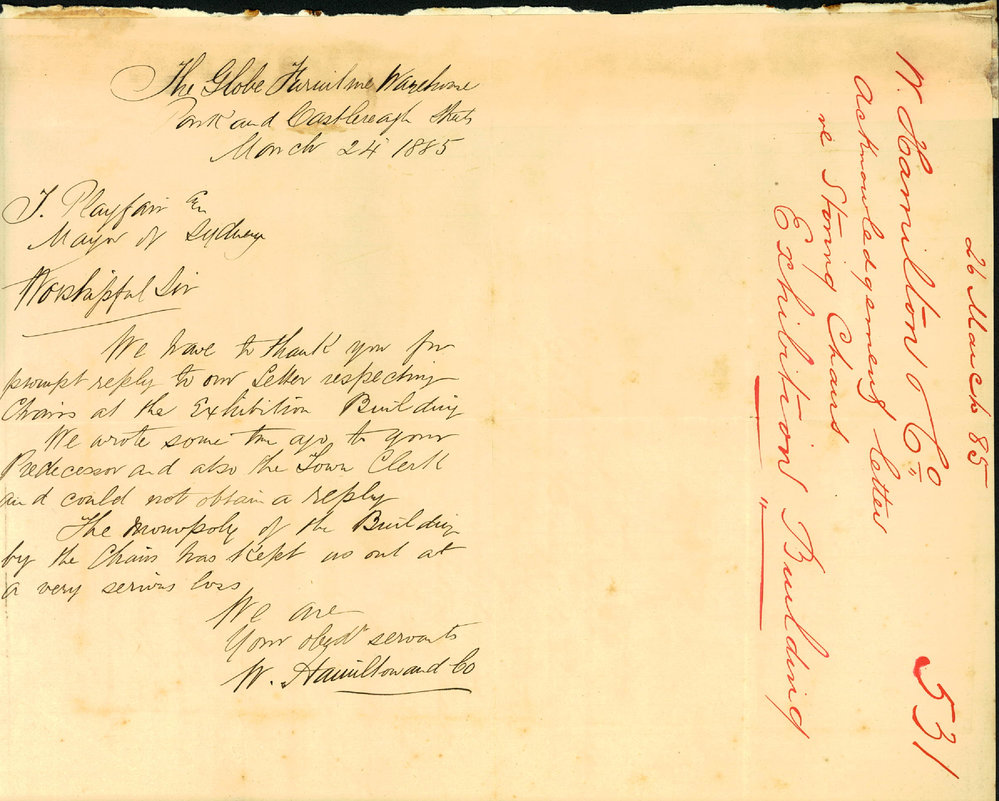 The Globe Furniture Warehouse
Park and Castlereagh Sts
March 24 1885
T. Playfair Esq
Mayor of Sydney
Worshipful Sir
We have to thank you for
prompt reply to our Letter respecting
Chairs at the Exhibition Building
We wrote some time ago, to your
Predecessor and also the Town Clerk
and could not obtain a reply
The monopoly of the Building
by the Chairs has kept us out at
a very serious loss
We are
Your obedt servants
W. Hamilton and Co
26 March 85
W. Hamilton & Co
531
acknowledgement letter
re Storing Chairs
Exhibition Building